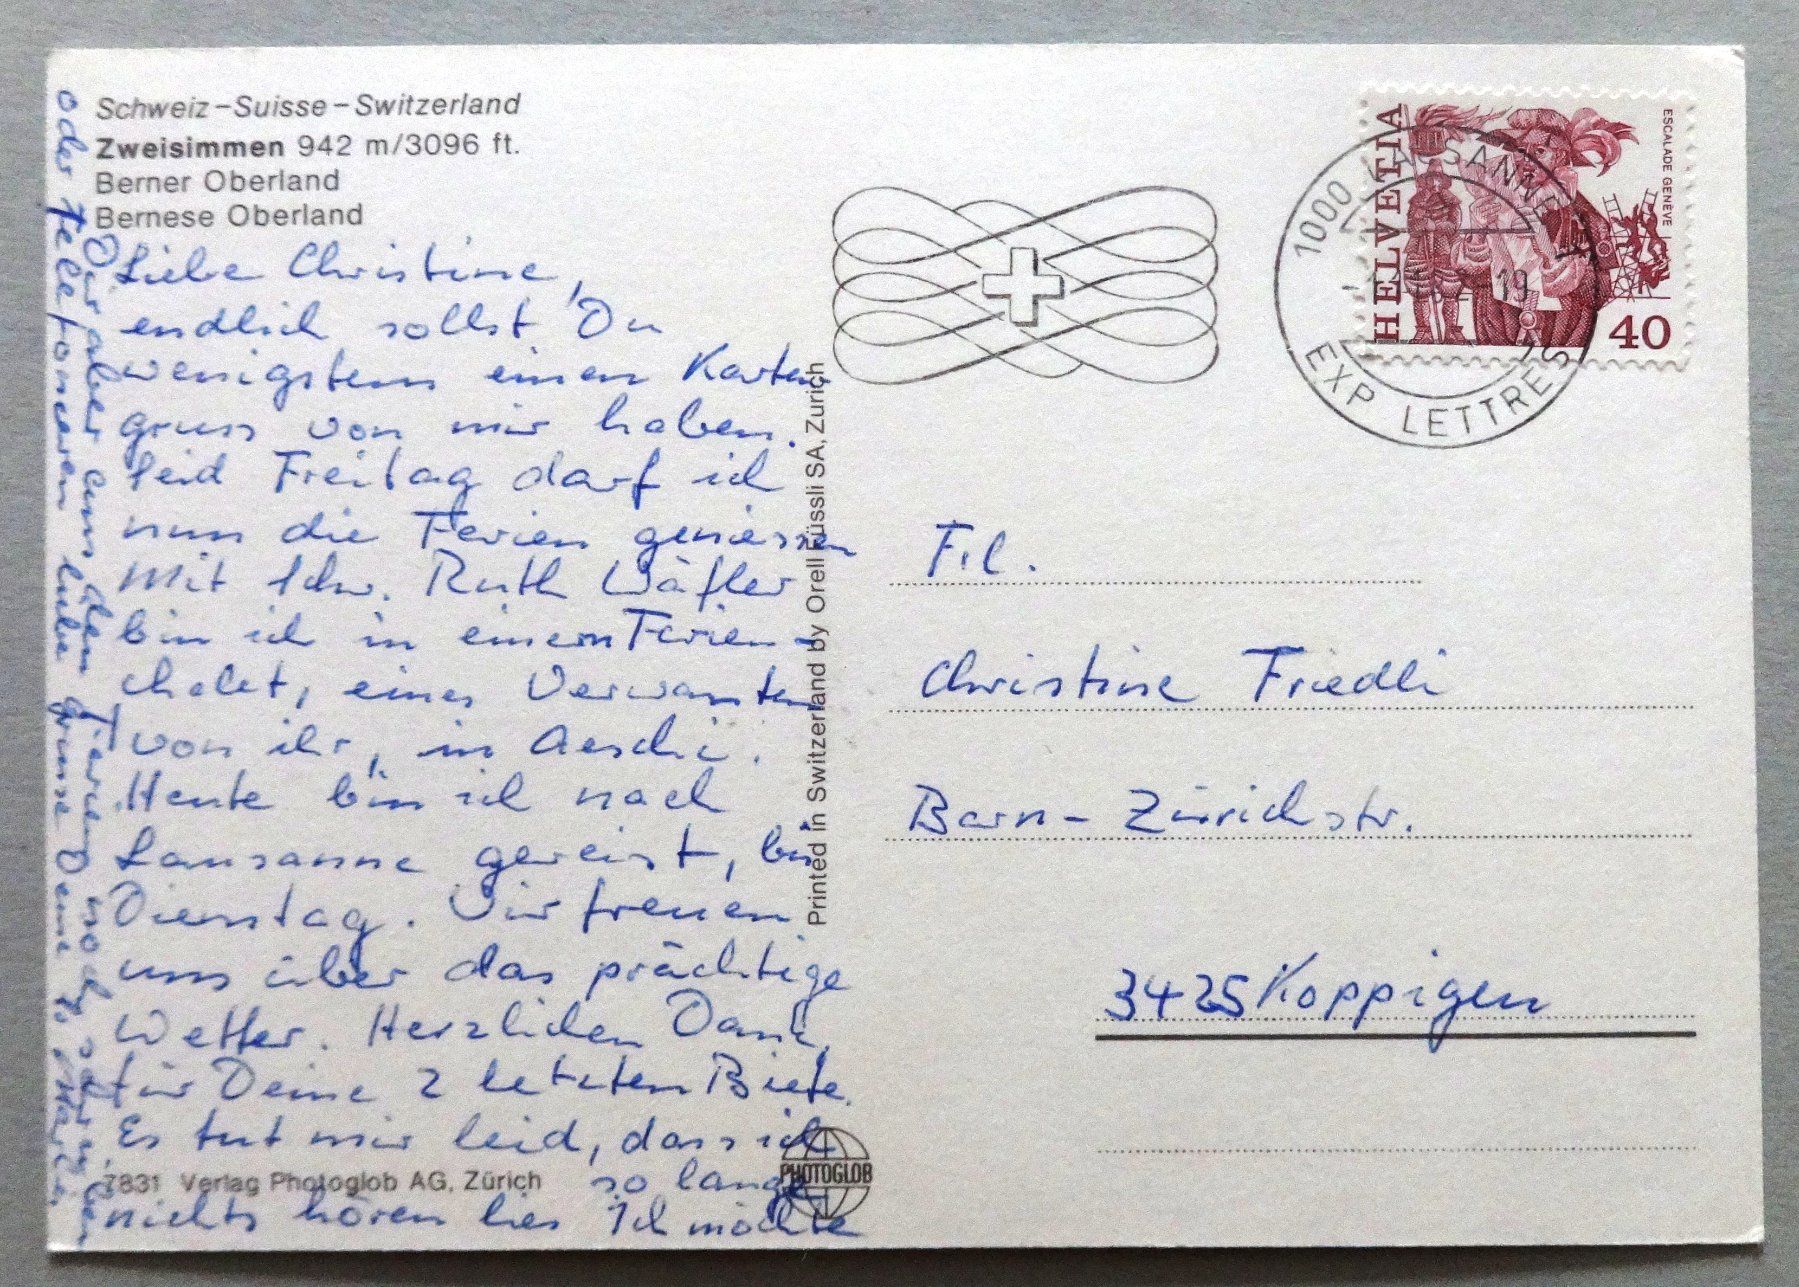 Schweiz – Suisse – Switzerland
Zweisimmen 942 m/3096 ft.
Berner Oberland
Bernese Oberland
Liebe Christine,
endlich sollst Du
wenigstens einen Karten
gruss von mir haben.
Seid Freitag darf ich
nun die Ferien geniessen
Mit Schw. Ruth Wäfler
bin ich in einem Ferien-
chalet, eines Verwanten
von ihr, in Aeschi.
Heute bin ich nach
Lausanne gereist, bis
Dienstag. Wir freuen
uns über das prächtige
Wetter. Herzlichen Dank
für Deine 2 letzten Briefe.
Es tut mir leid, dass ich
so lange
nichts hören lies Ich möchte
Dir aber aus den Ferien noch schreiben
oder telefonieren liebe Grüsse Deine
7831 Verlag Photoglob AG, Zürich
PHOTOGLOB
Printed in Switzerland by Orell Füssli SA, Zurich
1000 LAUSANNE 1
EXP LETTRES
HELVETIA
ESCALADE GENÈVE
40
Frl.
Christine Friedli
Bern-Zürichstr.
3425 Koppigen